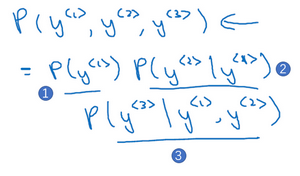 P(y<1>, y<2>, y<3>) ←
= P(y<1>) P(y<2> | y<1>) 2
1
P(y<3> | y<1>, y<2>)
3